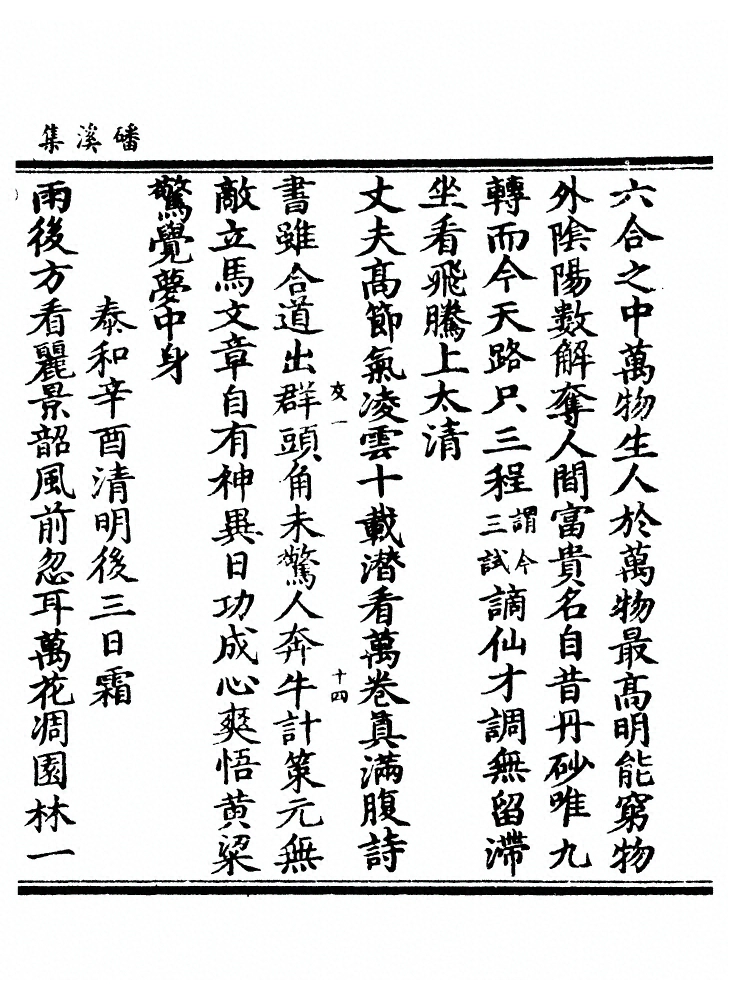 磻溪集
六合之中萬物生人於萬物最高明能窮物
外陰陽數解奪人間富貴名自昔丹砂唯九
轉而今天路只三程謂今三試謫仙才調無留滯
坐看飛騰上太清
丈夫高節氣凌雲十載潛看萬卷真滿腹詩
友一
十四
書雖合道出群頭角未驚人奔牛計策元無
敵立馬文章自有神異日功成心爽悟黃粱
驚覺夢中身
泰和辛酉清明後三日霜
雨後方看麗景韶風前忽耳萬花凋園林一